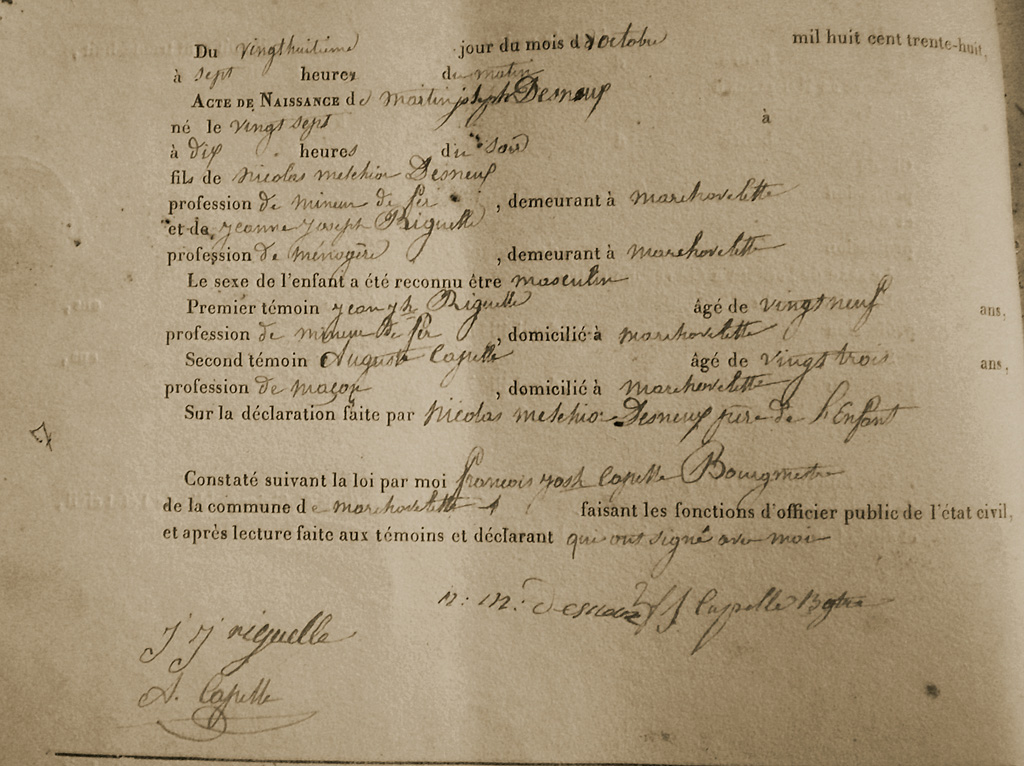 Du vingthuitième jour du mois d'octobre mil huit cent trente-huit,
à sept heures du matin
ACTE DE NAISSANCE de martin joseph Desneux
né le vingt sept à
à dix heures du soir
fils de nicolas melchior Desneux
profession de mineur de fer , demeurant à marchovelette
et de jeanne joseph Riguelle
profession de ménagère , demeurant à marchovelette
Le sexe de l'enfant a été reconnu être masculin
Premier témoin jean jh Riguelle âgé de vingt neuf ans,
profession de mineur de fer , domicilié à marchovelette
Second témoin Auguste Capelle âgé de vingt trois ans,
profession de maçon , domicilié à marchovelette
Sur la déclaration faite par nicolas melchior Desneux père de l'Enfant
Constaté suivant la loi par moi francois josh Capelle Bourgmestre
de la commune de marchovelette faisant les fonctions d'officier public de l'état civil,
et après lecture faite aux témoins et déclarant qui ont signé avec moi
n: m: Desneux f J Capelle Bgtre
J J riguelle
A. Capelle